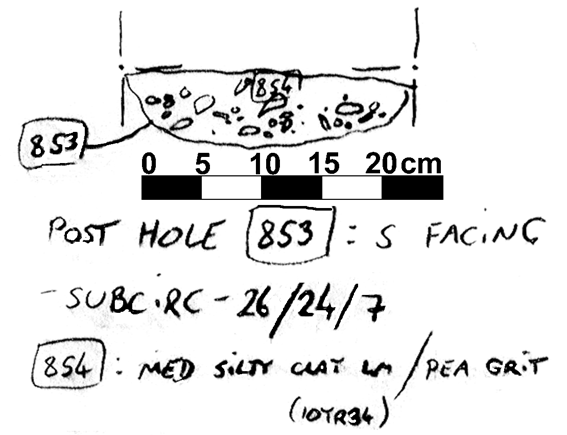 854
853
0 5 10 15 20 cm
POST HOLE 853 : S FACING
- SUBCIRC - 26/24/7
854 : MED SILTY CLAY LM / PEA GRIT
(10YR34)